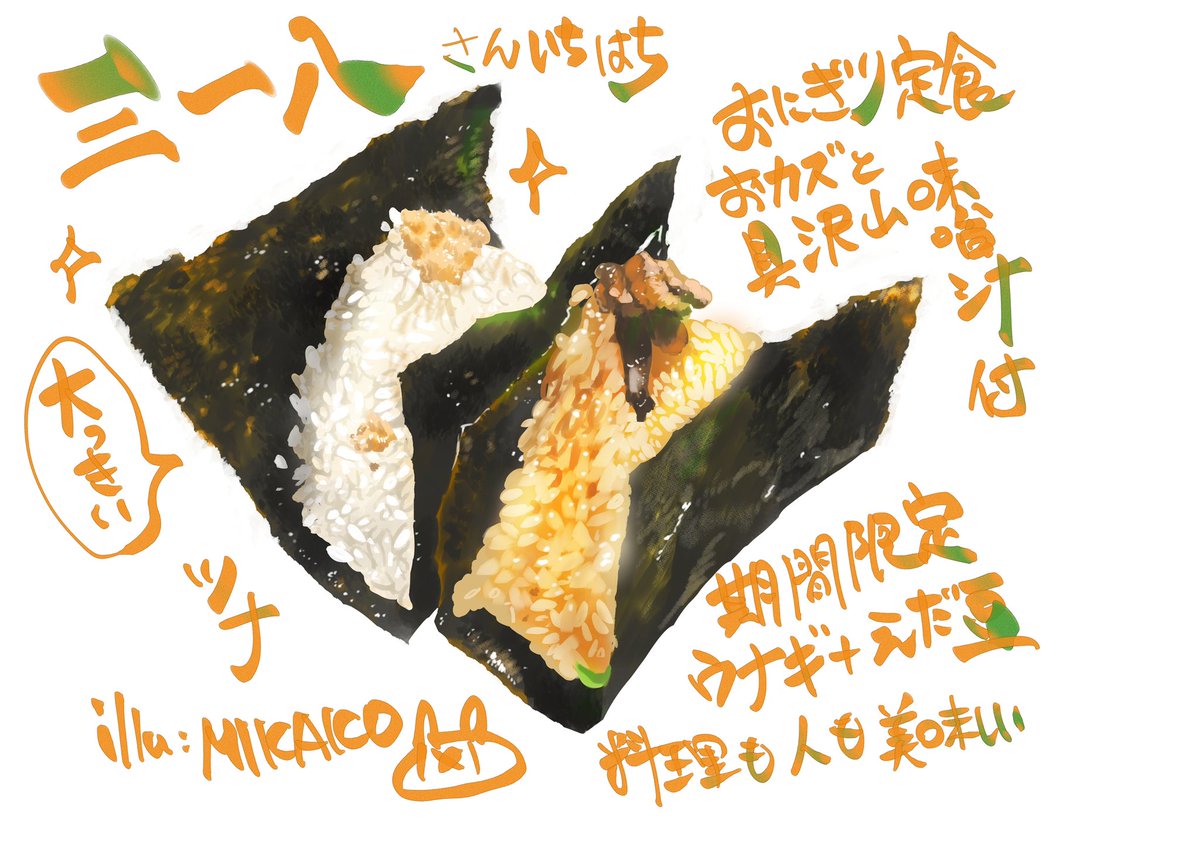 三一八
さんいちはち
おにぎり定食
おカズと
具沢山味噌汁付
大っきい
ツナ
期間限定
ウナギ+えだ豆
料理も人も美味しい
illu:MIKAKO